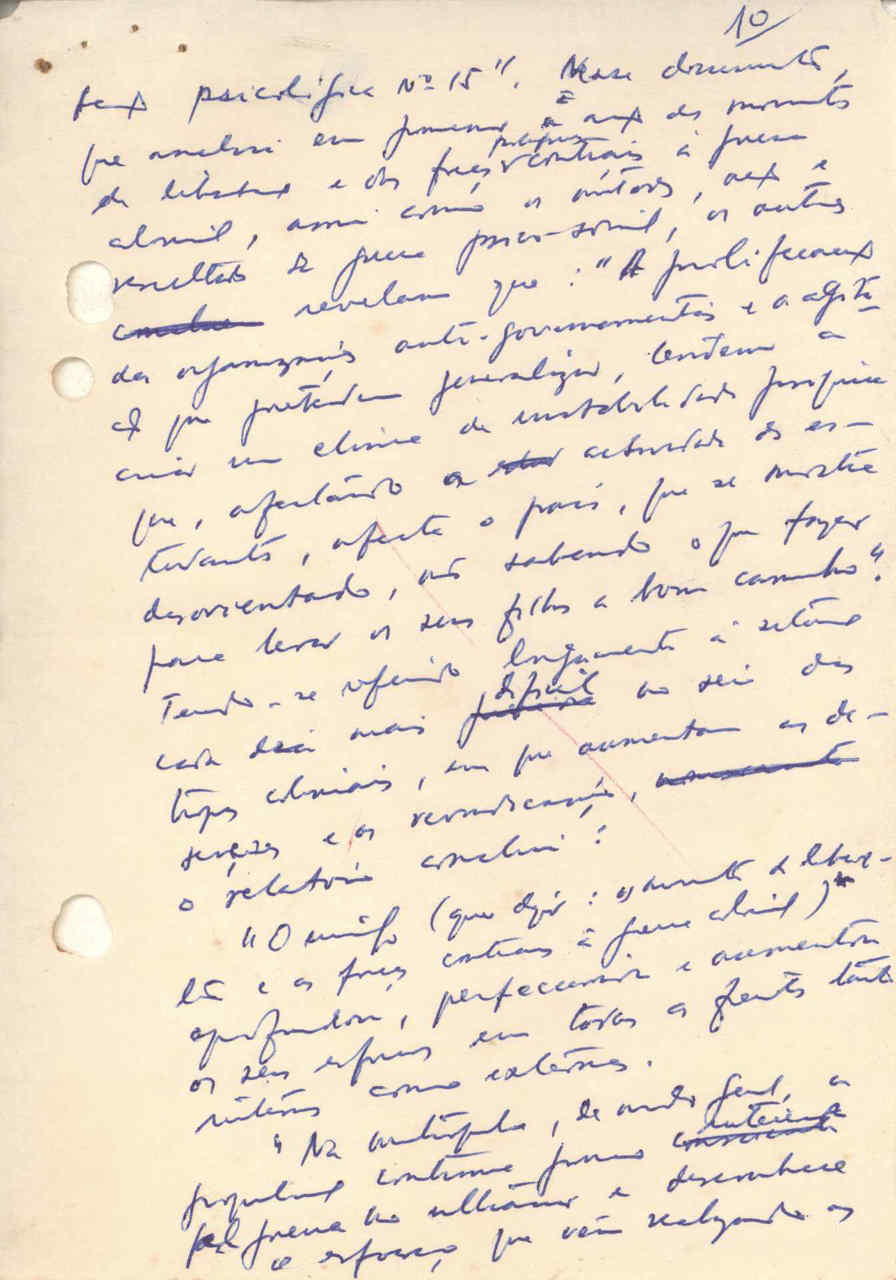 10
psicológica Nº 15". Nesse documento,
que analisa em pormenor a dos movimentos
de libertação e das forças contrárias à guerra
colonial, assim como os a e
resultados da guerra psico-social, os autores
revelam que: "A proliferação
das organizações anti-governamentais e a agita-
ção que pretendem generalizar, tendem a
criar um clima de instabilidade psíquica
que, afectando a actividade dos es-
tudantes, afecta o país, que se mostra
desorientado, não sabendo o que fazer
para levar os seus filhos a bom caminho".
Tendo-se referido longamente à situação
cada dia mais difícil no seio das
tropas coloniais, em que aumentam as de-
serções e as reivindicações,
o relatório conclui:
"O inimigo (quer dizer: os movimentos de liberta-
ção e as forças contrárias à guerra colonial)
aprofundou, perfeccionou e aumentou
os seus esforços em todas as frentes tanto
internas como externas.
"Na metrópole, de modo geral, a
população continua pouco interessada
pela guerra no ultramar e desconhece
o esforço que vem realizando as